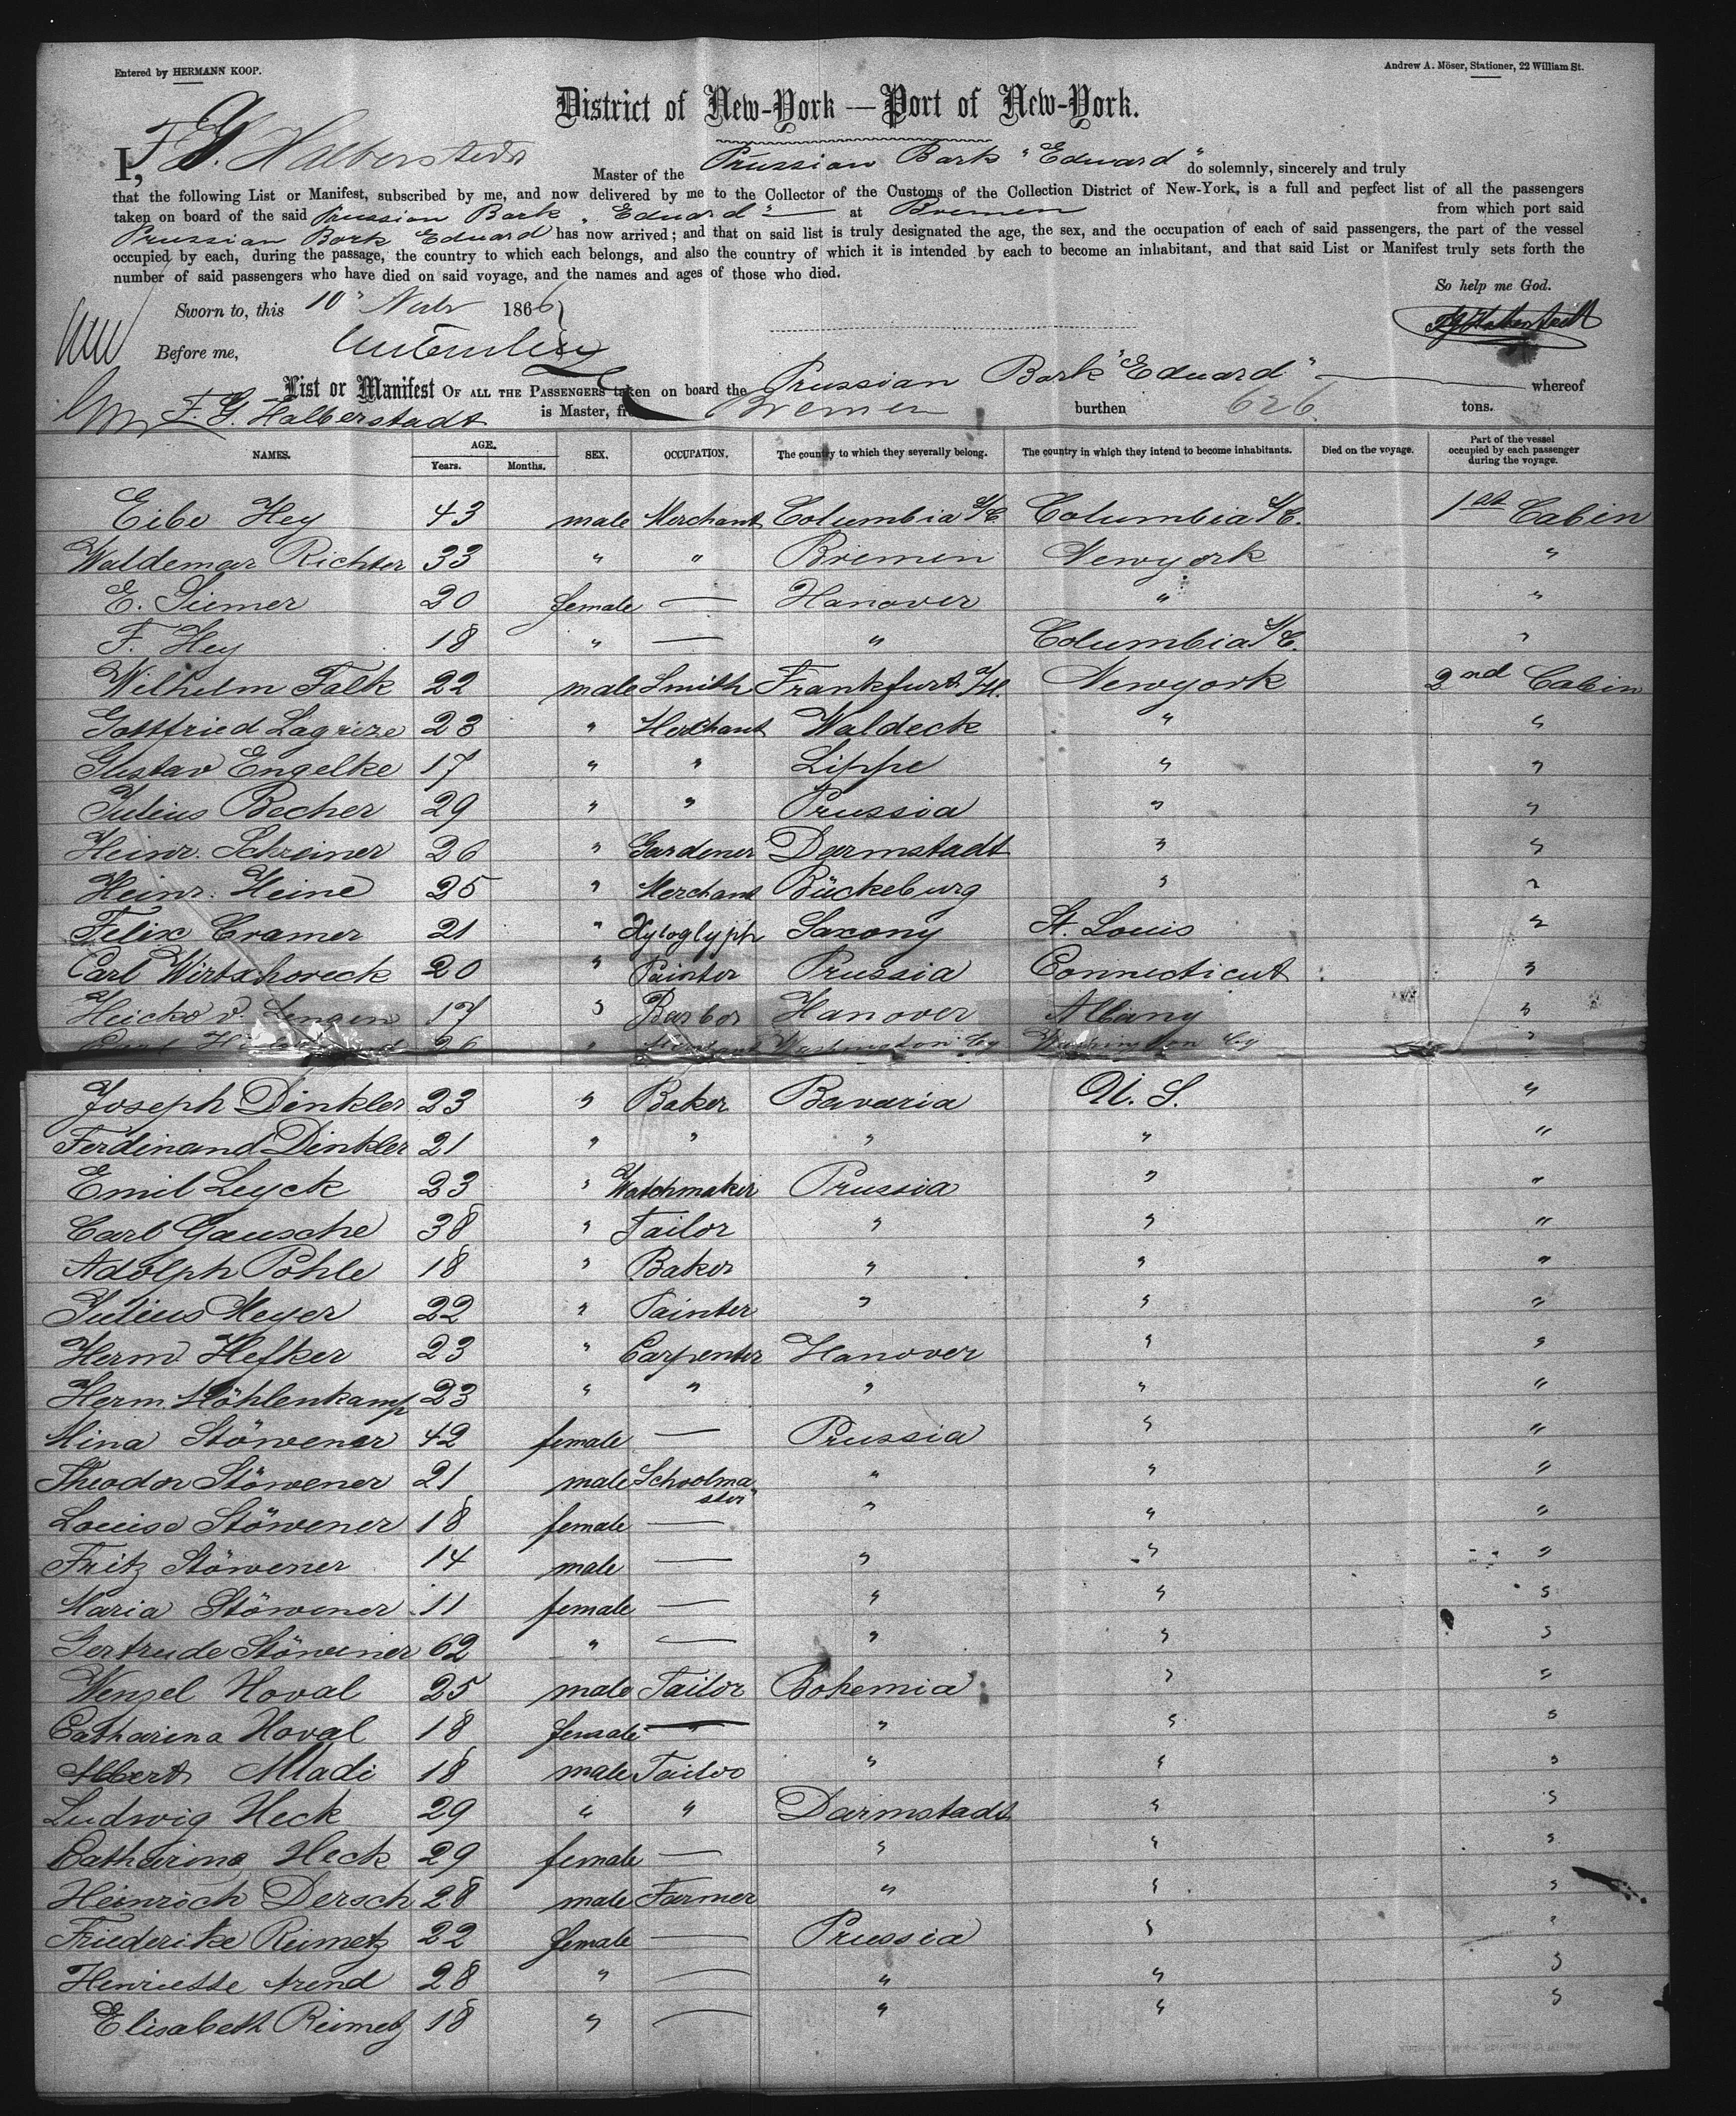 Entered by HERMANN KOOP.
Andrew A. Möser, Stationer, 22 William St.
District of New-York — Port of New-York.
I, F. G. Halberstadt Master of the Prussian Bark "Eduard" do solemnly, sincerely and truly
that the following List or Manifest, subscribed by me, and now delivered by me to the Collector of the Customs of the Collection District of New-York, is a full and perfect list of all the passengers
taken on board of the said Prussian Bark "Eduard" — at Bremen from which port said
Prussian Bark Eduard has now arrived; and that on said list is truly designated the age, the sex, and the occupation of each of said passengers, the part of the vessel
occupied by each, during the passage, the country to which each belongs, and also the country of which it is intended by each to become an inhabitant, and that said List or Manifest truly sets forth the
number of said passengers who have died on said voyage, and the names and ages of those who died.
So help me God.
Sworn to, this 10" Nov 1866
FGHalberstadt
Before me,
List or Manifest OF ALL THE PASSENGERS taken on board the Prussian Bark "Eduard" — whereof
F. G. Halberstadt is Master, from Bremen burthen 626 tons.
NAMES. AGE. Years. Months. SEX. OCCUPATION. The country to which they severally belong. The country in which they intend to become inhabitants. Died on the voyage. Part of the vessel occupied by each passenger during the voyage.
Eibe Hey 43 male Merchant Columbia S/C Columbia S/C. 1st Cabin
Waldemar Richter 33 " " Bremen Newyork "
E. Siemer 20 female — Hanover " "
F. Hey 18 " — " Columbia S/C. "
Wilhelm Falk 22 male Smith Frankfurt a/M. Newyork 2nd Cabin
Gottfried Lagrize 23 " Merchant Waldeck " "
Gustav Engelke 17 " " Lippe " "
Julius Becher 29 " " Prussia " "
Heinr. Schreiner 26 " Gardener Darmstadt " "
Heinr. Heine 25 " Merchant Bückeburg " "
Felix Cramer 21 " Xyloglyph Saxony St. Louis "
Carl Wirtschoreck 20 " Painter Prussia Connecticut "
Heicko v. Lengen 17 " Barber Hanover Albany "
26 " Washington Cy Washington Cy "
Joseph Dinkler 23 " Baker Bavaria U. S. "
Ferdinand Dinkler 21 " " " " "
Emil Leyck 23 " Watchmaker Prussia " "
Carl Gausche 38 " Tailor " " "
Adolph Pohle 18 " Baker " " "
Julius Meyer 22 " Painter " " "
Herm. Hefker 23 " Carpenter Hanover " "
Herm. Möhlenkamp 23 " " " " "
Mina Stöwener 42 female — Prussia " "
Theodor Stöwener 21 male Schoolmaster " " "
Louise Stöwener 18 female — " " "
Fritz Stöwener 14 male — " " "
Maria Stöwener 11 female — " " "
Gertrude Stöwener 62 " — " " "
Wenzel Hoval 25 male Tailor Bohemia " "
Catharina Hoval 18 female — " " "
Albert Mladi 18 male Tailor " " "
Ludwig Heck 29 " " Darmstadt " "
Catharina Heck 29 female — " " "
Heinrich Dersch 28 male Farmer " " "
Friederike Reimetz 22 female — Prussia " "
Henriette Arend 28 " — " " "
Elisabeth Reimetz 18 " — " " "